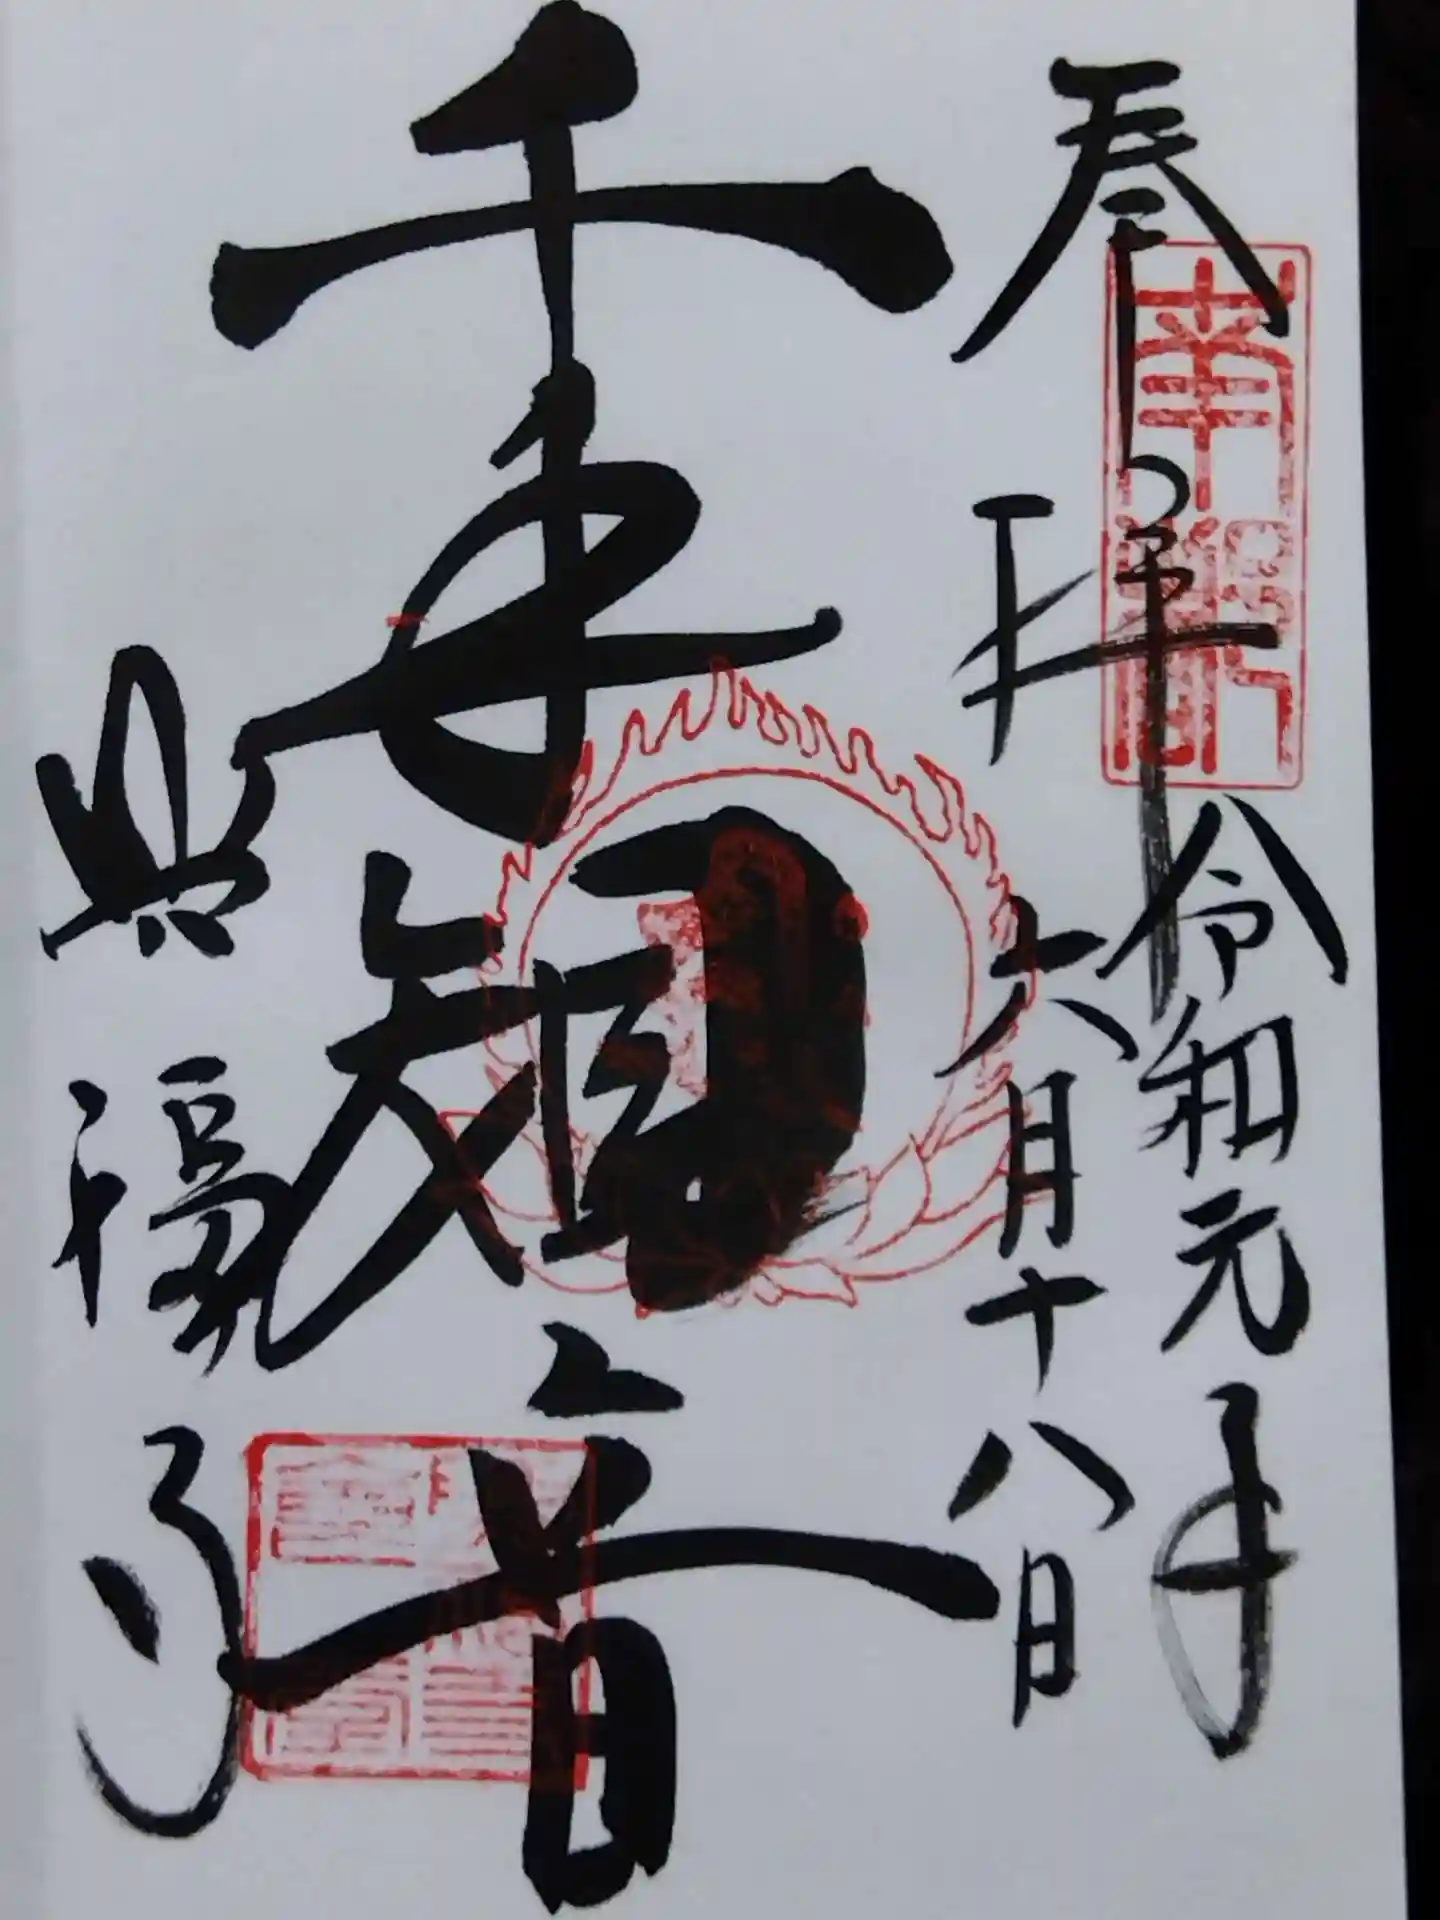 奉拝
令和元年
六月十八日
千手観音
照福寺